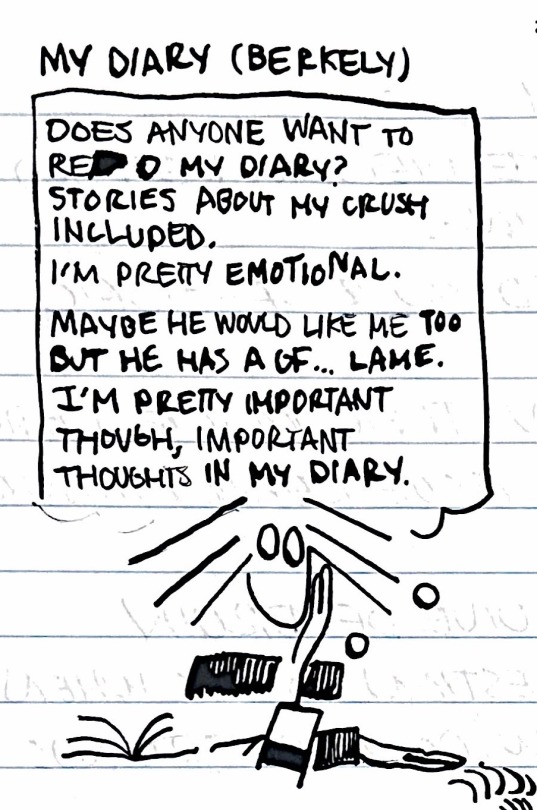 MY DIARY (BERKELY)
DOES ANYONE WANT TO
RE D MY DIARY?
STORIES ABOUT MY CRUSH
INCLUDED.
I'M PRETTY EMOTIONAL.
MAYBE HE WOULD LIKE ME TOO
BUT HE HAS A GF... LAME.
I'M PRETTY IMPORTANT
THOUGH, IMPORTANT
THOUGHTS IN MY DIARY.